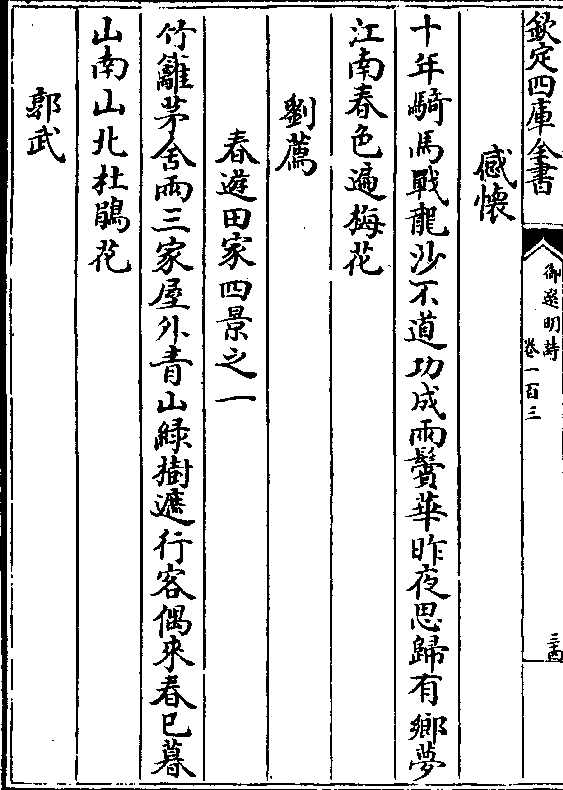 欽定四庫全書
御選明詩
卷一百三
三古
感懷
十年騎馬戰龍沙不道功成兩鬢華昨夜思歸有鄉夢
江南春色遍梅花
劉薦
春遊田家四景之一
竹籬茅舍兩三家屋外青山緑樹遮行客偶來春已暮
山南山北杜鵑花
郭武